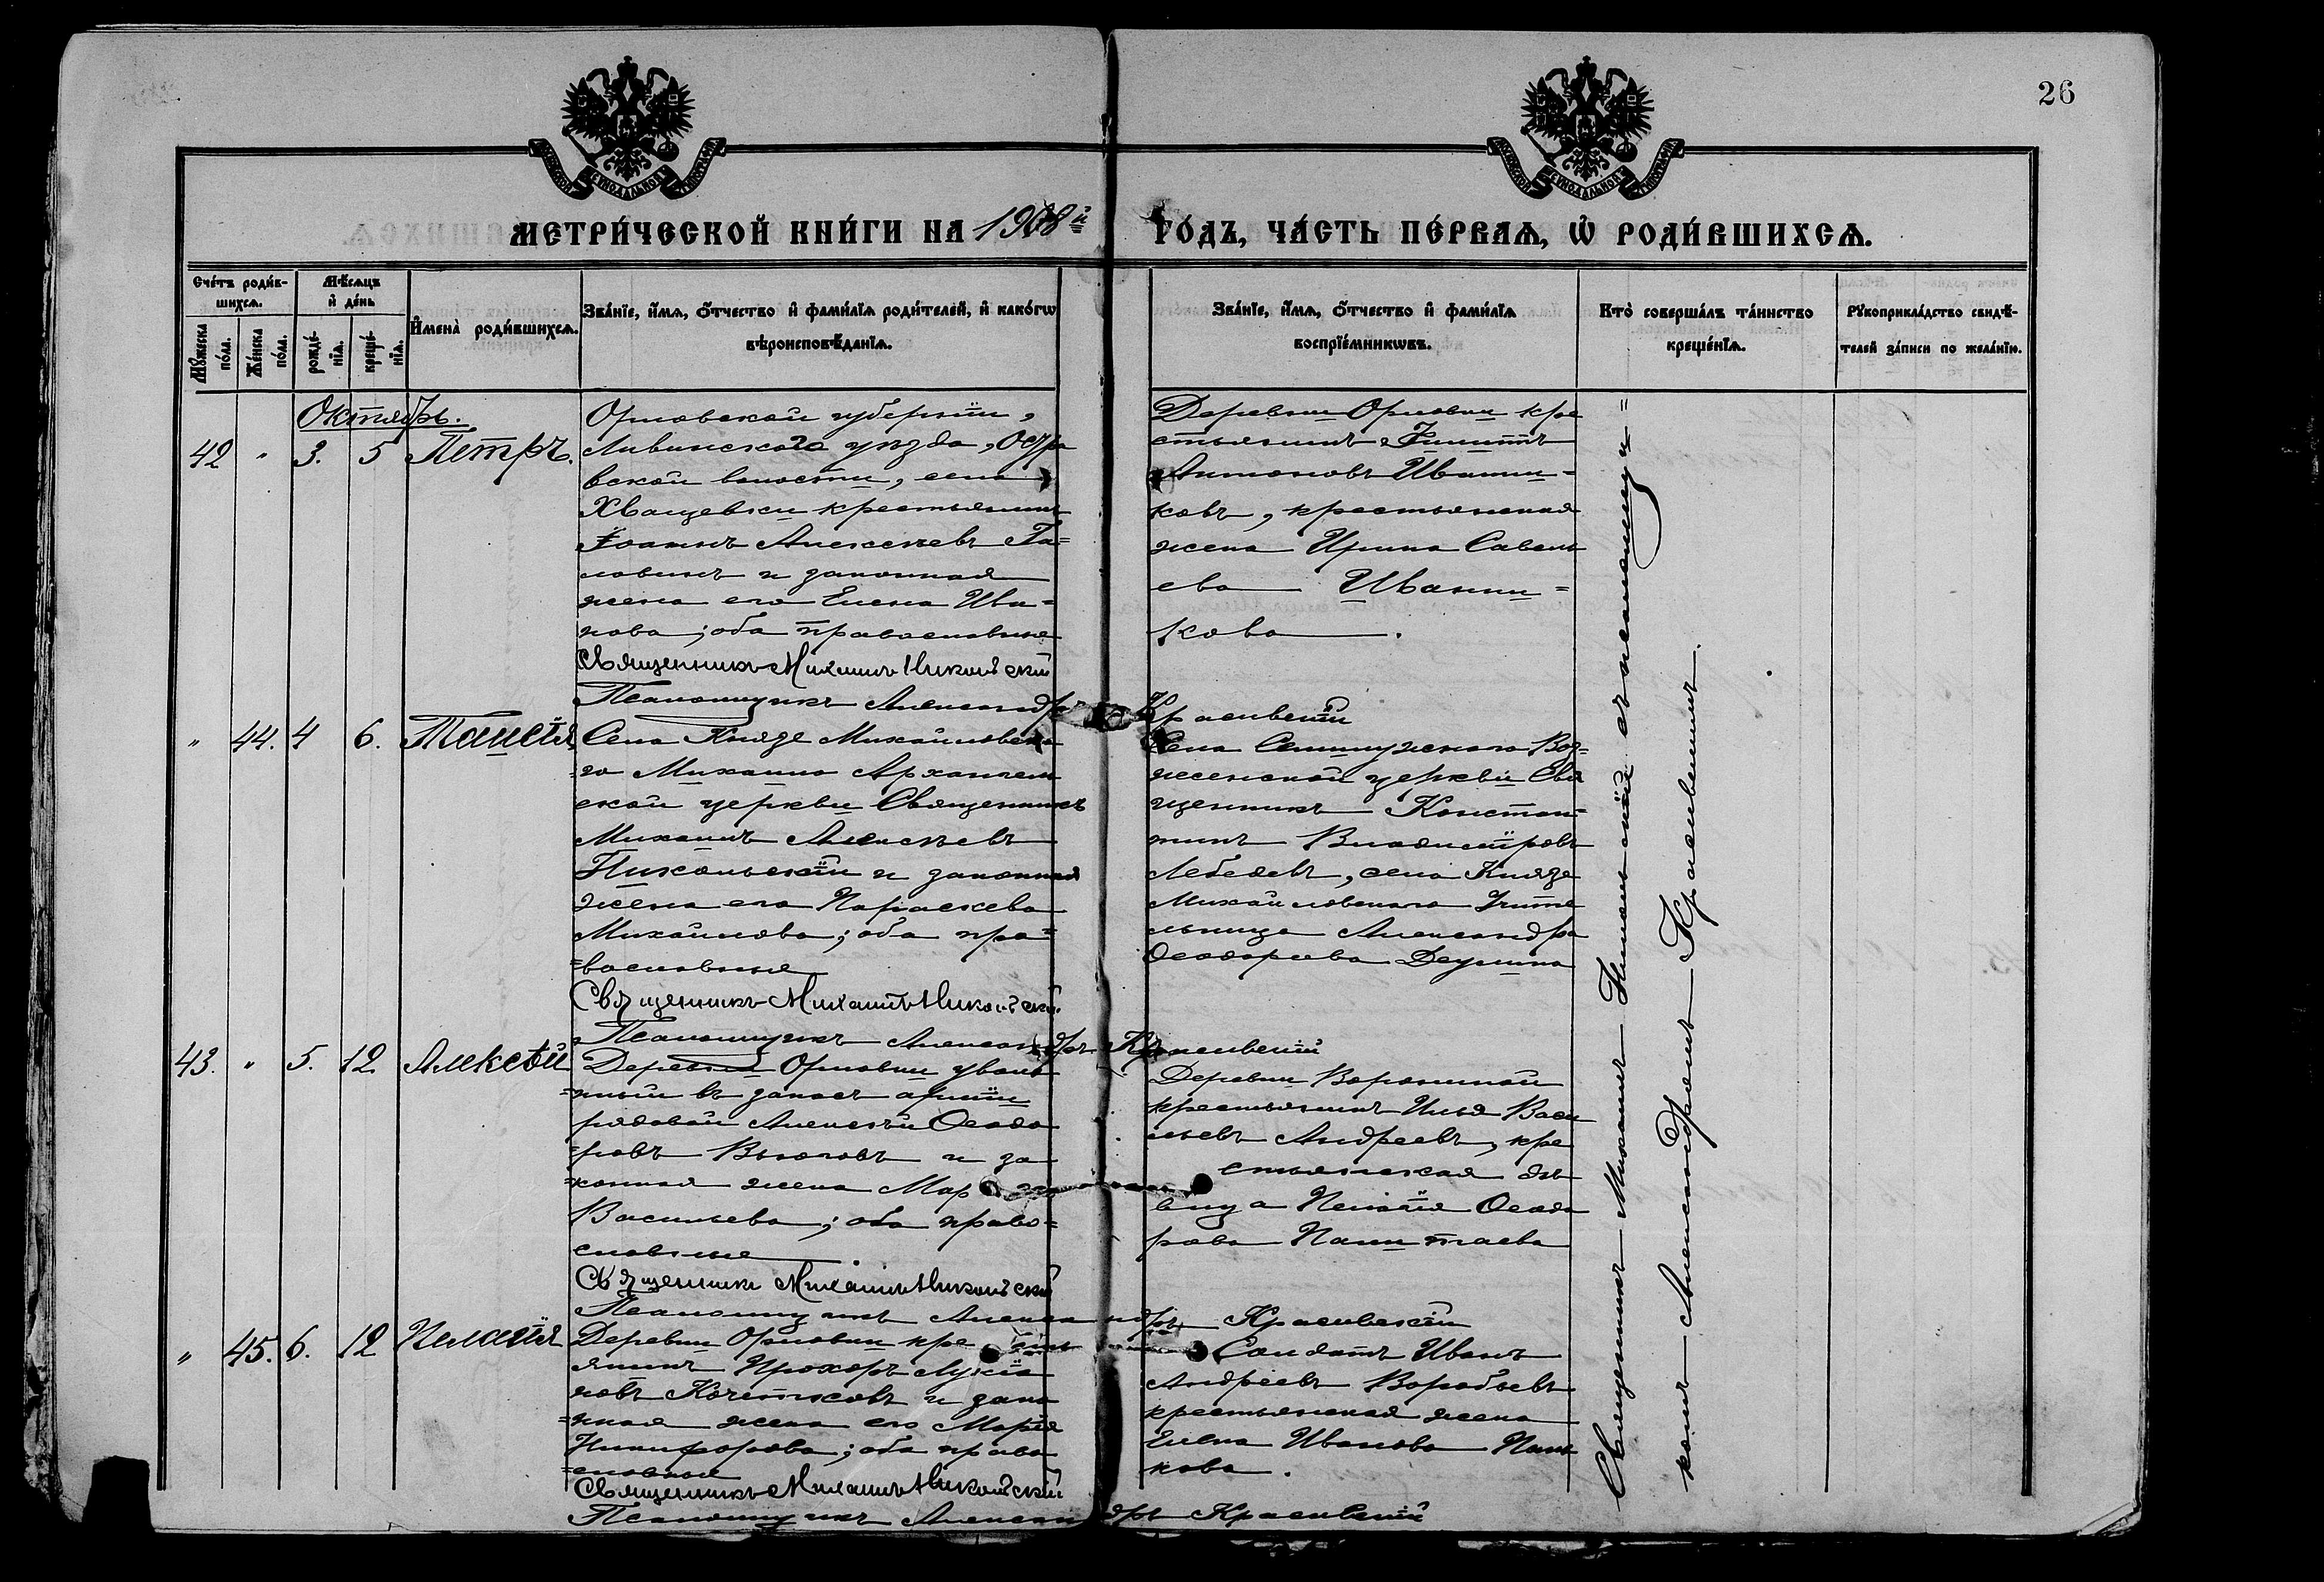 26
МЕТРИ́ЧЕСКОЙ КНИ́ГИ НА 1908й ГО́ДЪ, ЧА́СТЬ ПЕ́РВАѦ, Ѡ҆ РОДИ́ВШИХСѦ.
Сче́тъ роди́в-
шихсѧ.
Мꙋ́жеска по́ла.
Же́нска по́ла.
Мѣ́сѧцъ
и҆ де́нь
рожде́-
нїѧ.
креще́-
нїѧ.
И҆мена̀ роди́вшихсѧ.
Зва́нїе, и҆́мѧ, ѻ҆́тчество и҆ фами́лїѧ роди́телей, и҆ како́гѡ
вѣроисповѣ́данїѧ.
Зва́нїе, и҆́мѧ, ѻ҆́тчество и҆ фами́лїѧ
воспрїе́мникѡвъ.
Кто̀ соверша́лъ та́инство
креще́нїѧ.
Рꙋкоприкла́дство свидѣ́-
телей за́писи по жела́нїю.
Октябрь.
42 " 3. 5 Петръ.
Орловской губернiи,
Ливинскаго уѣзда,
вской волости, села
Хвощевки крестьянинъ
Iоаннъ Алексѣевъ Го=
ловинъ и законная
жена его Елена Ива=
нова; оба православные
Священникъ Михаилъ Никольскiй
Псаломщикъ Александръ Красивскiй
Деревни Орловки кре
стьянинъ Филиппъ
Антоновъ Иванни=
ковъ, крестьянская
жена Ирина Савель
ева Иванни=
кова.
" 44. 4 6. Таисiя
Села Князе Михайловска
=го Михаило Архангель
ской церкви Священникъ
Михаилъ Алексѣевъ
Никольскiй и законная
жена его Параскева
Михайлова; оба пра=
=вославные
Священникъ Михаилъ Никольскiй.
Псаломщикъ Александръ Красивскiй
Села Семилужскаго Воз=
несенской церкви Свя
щенникъ Констан=
тинъ Владимiровъ
Лебедевъ, села Князе
Михайловскаго Учите
льница Александра
Ѳеодорова Деулина
43. " 5. 12. Алексѣй
Деревни Орловки уволе
=нный въ запасъ армiи
рядовой Алексѣй Ѳеодо
=ровъ Вьюговъ и за
=конная жена
Васильева; оба право=
славные
Священникъ Михаилъ Никольскiй
Псаломщикъ Александръ Красивскiй
Деревни Ворониной
крестьянинъ Илья Васи
льевъ Андреевъ, кре
стьянская дѣ
вица Пелагiя Ѳеодо
рова
" 45. 6. 12 Пелагiя
Деревни Орловки кресть
янинъ Прохоръ Лукiа
новъ Кочетковъ и зако
=нная жена его Марiя
Никифорова; оба право
=славные
Священникъ Михаилъ Никольскiй
Псаломщикъ Александръ Красивскiй
Солдатъ Иванъ
Андреевъ Воробьевъ
крестьянская жена
Елена Иванова Пань
кова.
Священникъ Михаилъ Никольскiй съ псаломщи=
комъ Александромъ Красивскимъ.